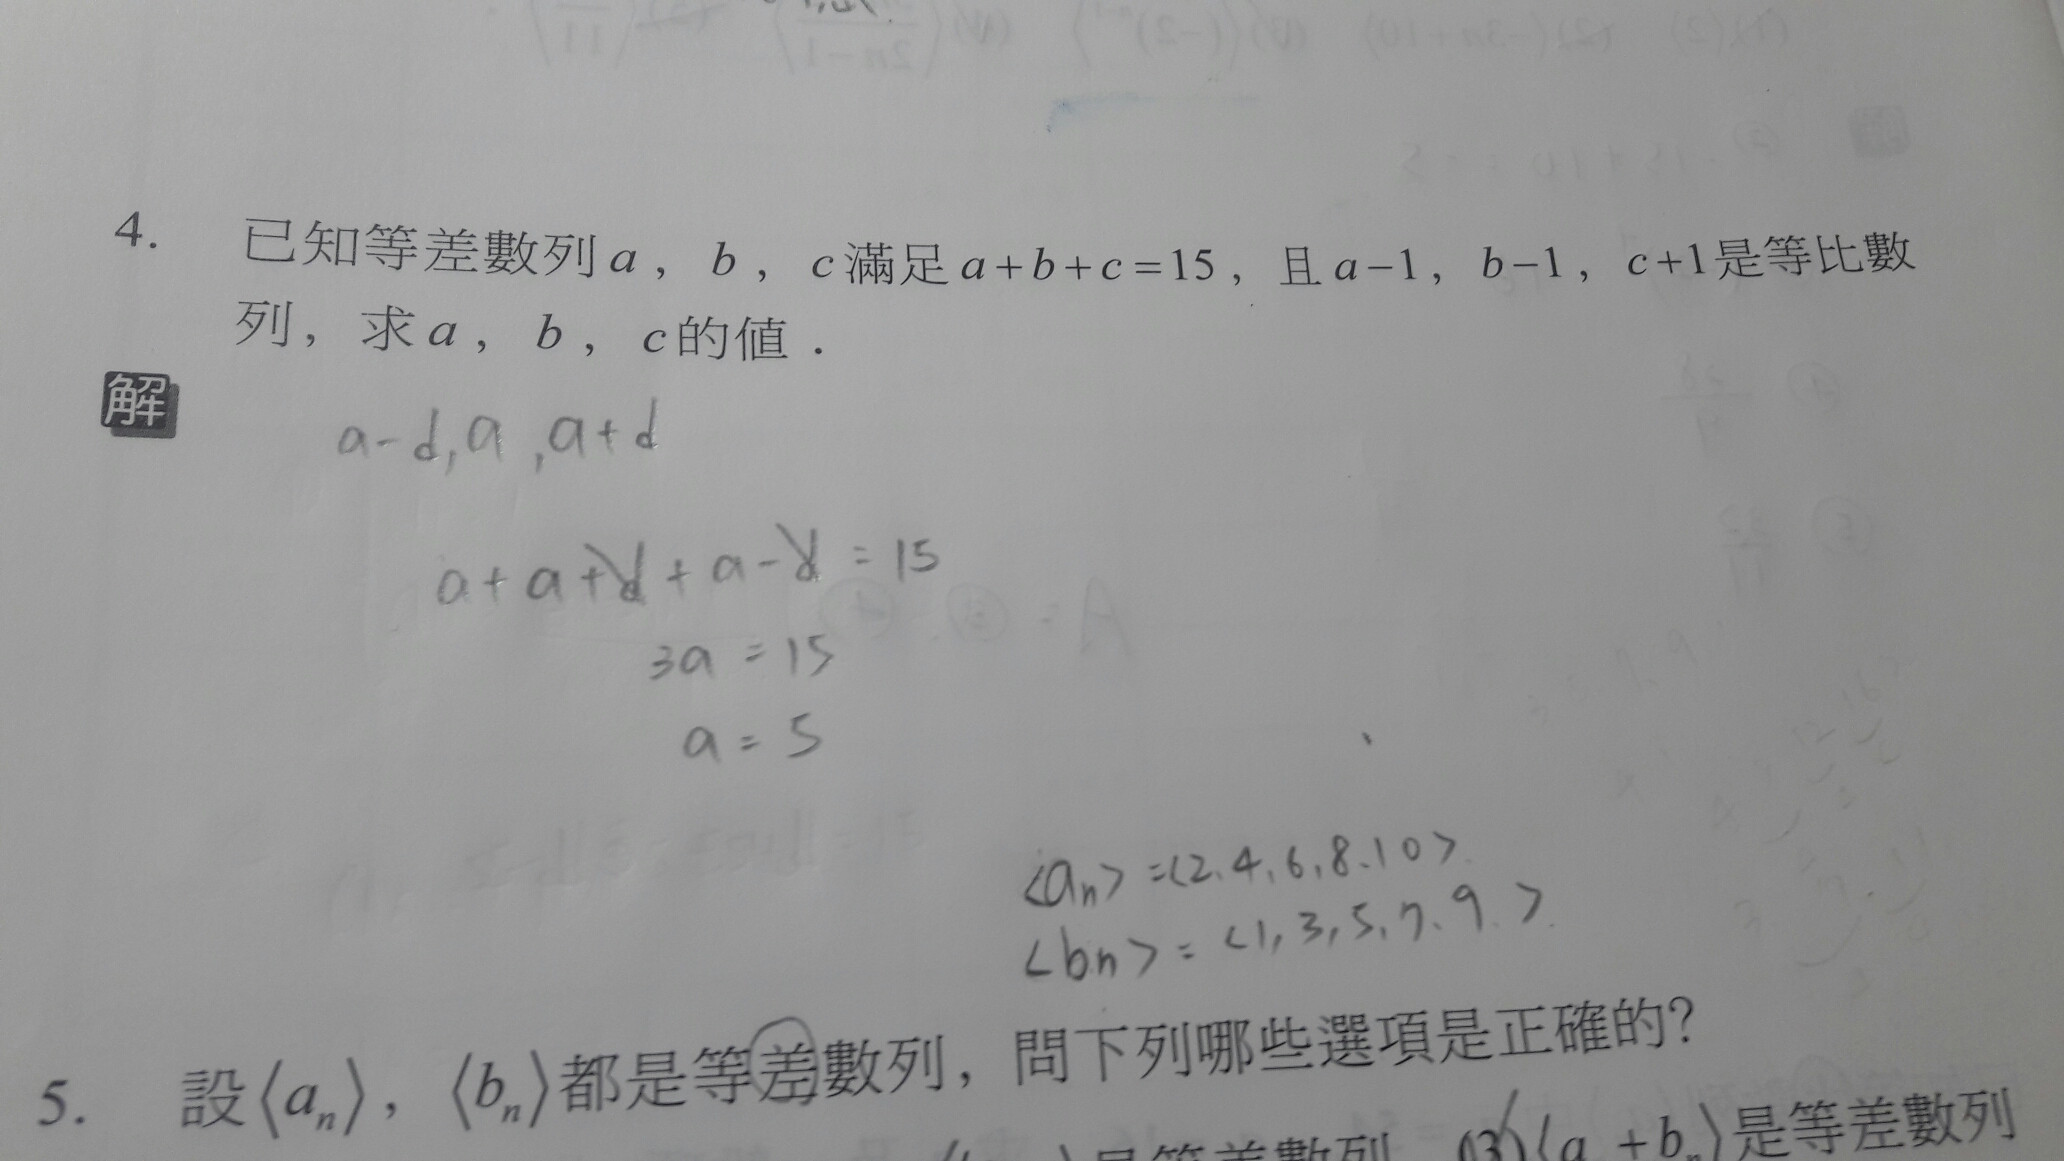 4. 已知等差數列a，b，c滿足a+b+c=15，且a−1，b−1，c+1是等比數
列，求a，b，c的值．
解
a-d, a, a+d
a+a+d+a-d=15
3a=15
a=5
<an>=<2,4,6,8,10>
<bn>=<1,3,5,7,9>
5. 設⟨an⟩，⟨bn⟩都是等差數列，問下列哪些選項是正確的？
是等差數列 (3)⟨a +bn⟩是等差數列